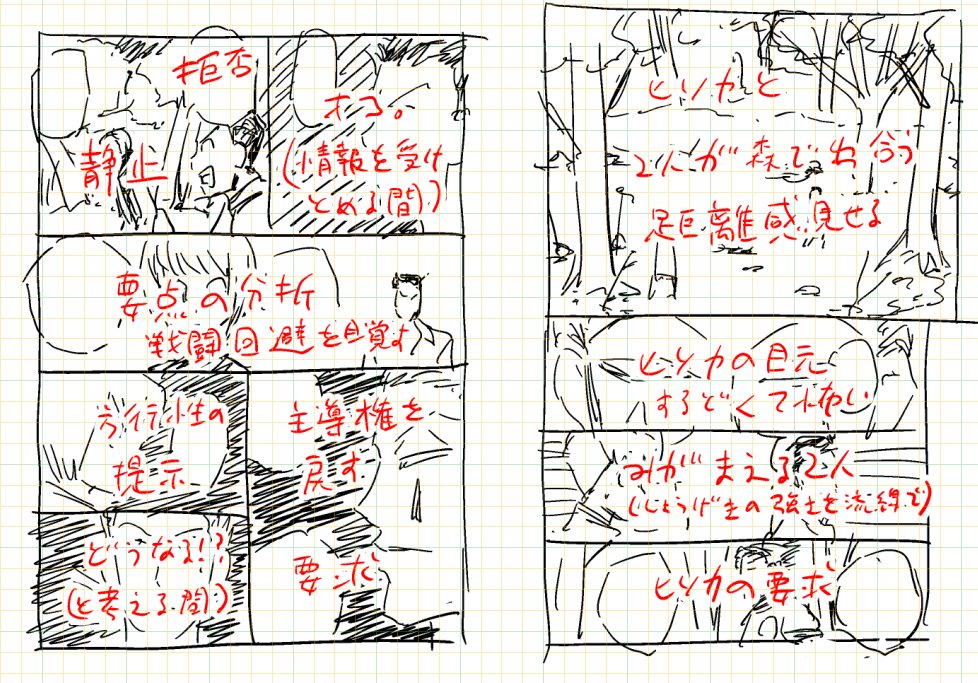 ヒソカと
2人が森で出会う
距離感見せる
ヒソカの目元
するどくて怖い
みがまえる2人
(しょうげきの強さを流線で)
ヒソカの要求
拒否
静止
(情報を受け
とめる間)
要点の分析
戦闘回避を目覚す
方行性の
提示
主導権を
戻す
どうなる!?
(と考える間)
要求